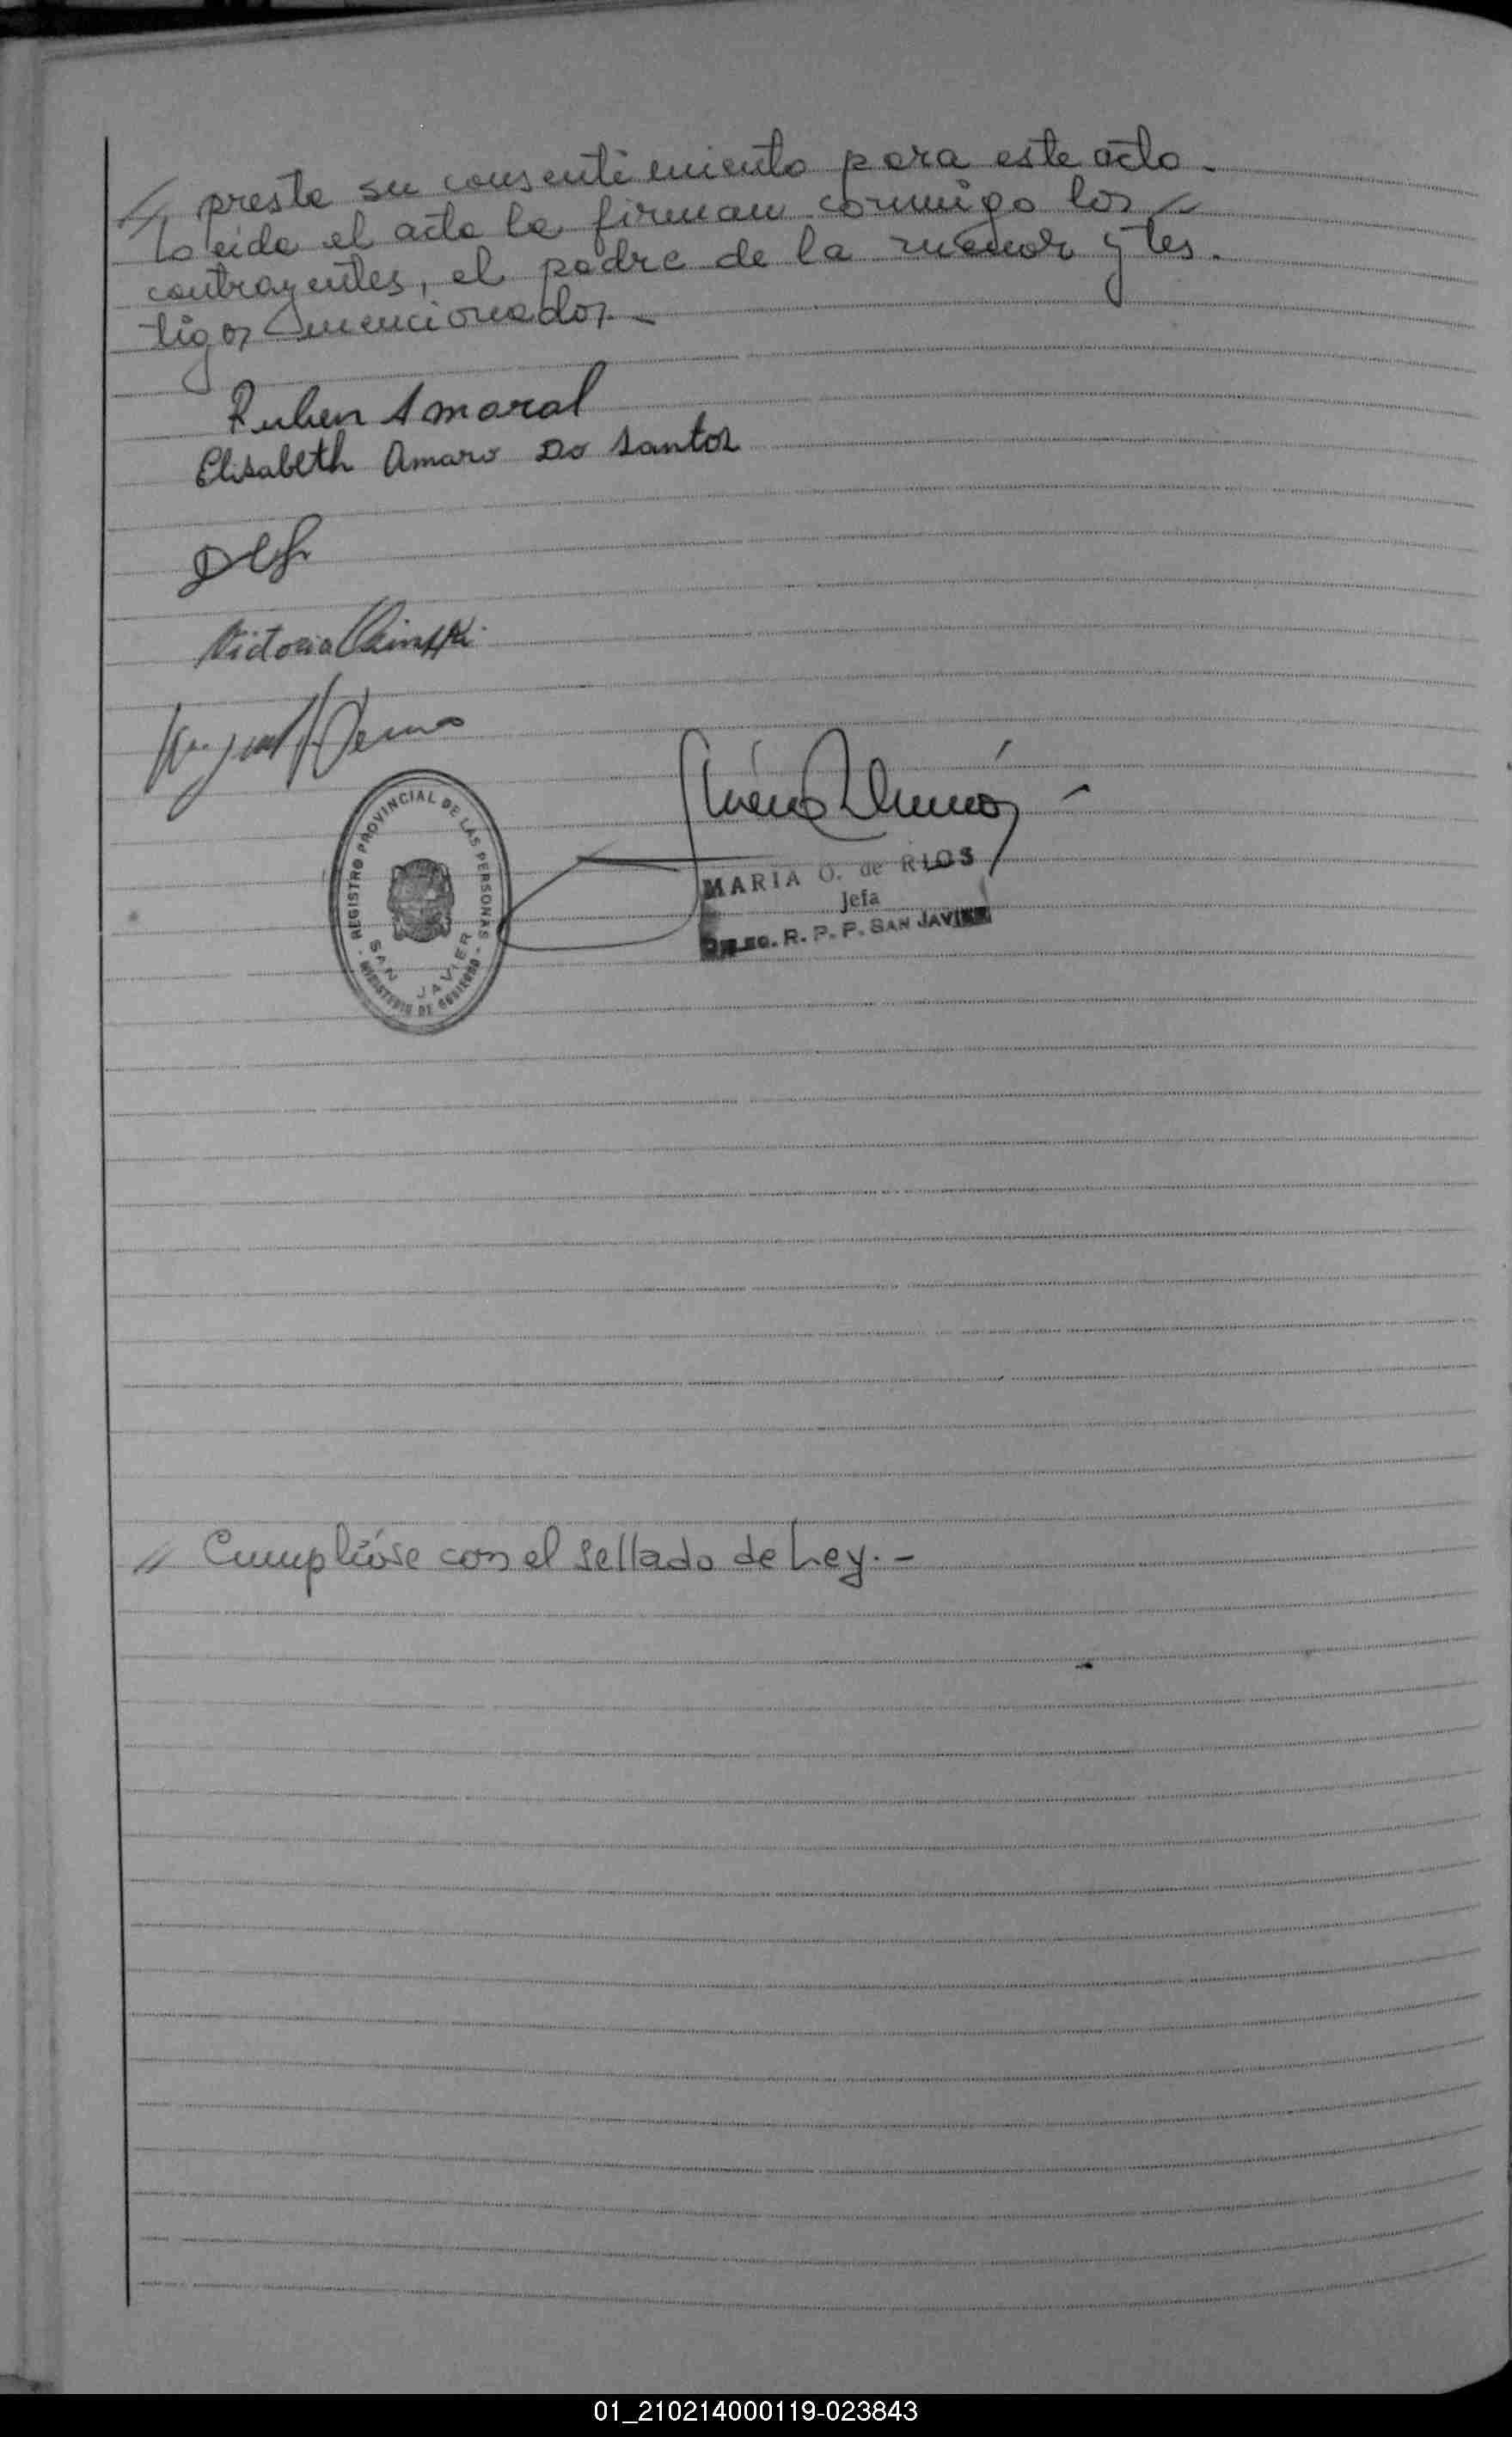 // presta su consentimiento para este acto.
Leída el acta la firman conmigo los //
contrayentes, el padre de la menor y tes.
tigos mencionados. -
Ruben Amaral
Elisabeth Amaro Do Santos
Victoria
REGISTRO PROVINCIAL DE LAS PERSONAS
SAN JAVIER
MINISTERIO DE GOBIERNO
MARIA O. de RIOS
Jefa
R. P. P. SAN JAVIER
// Cumplióse con el sellado de Ley. -
01_210214000119-023843